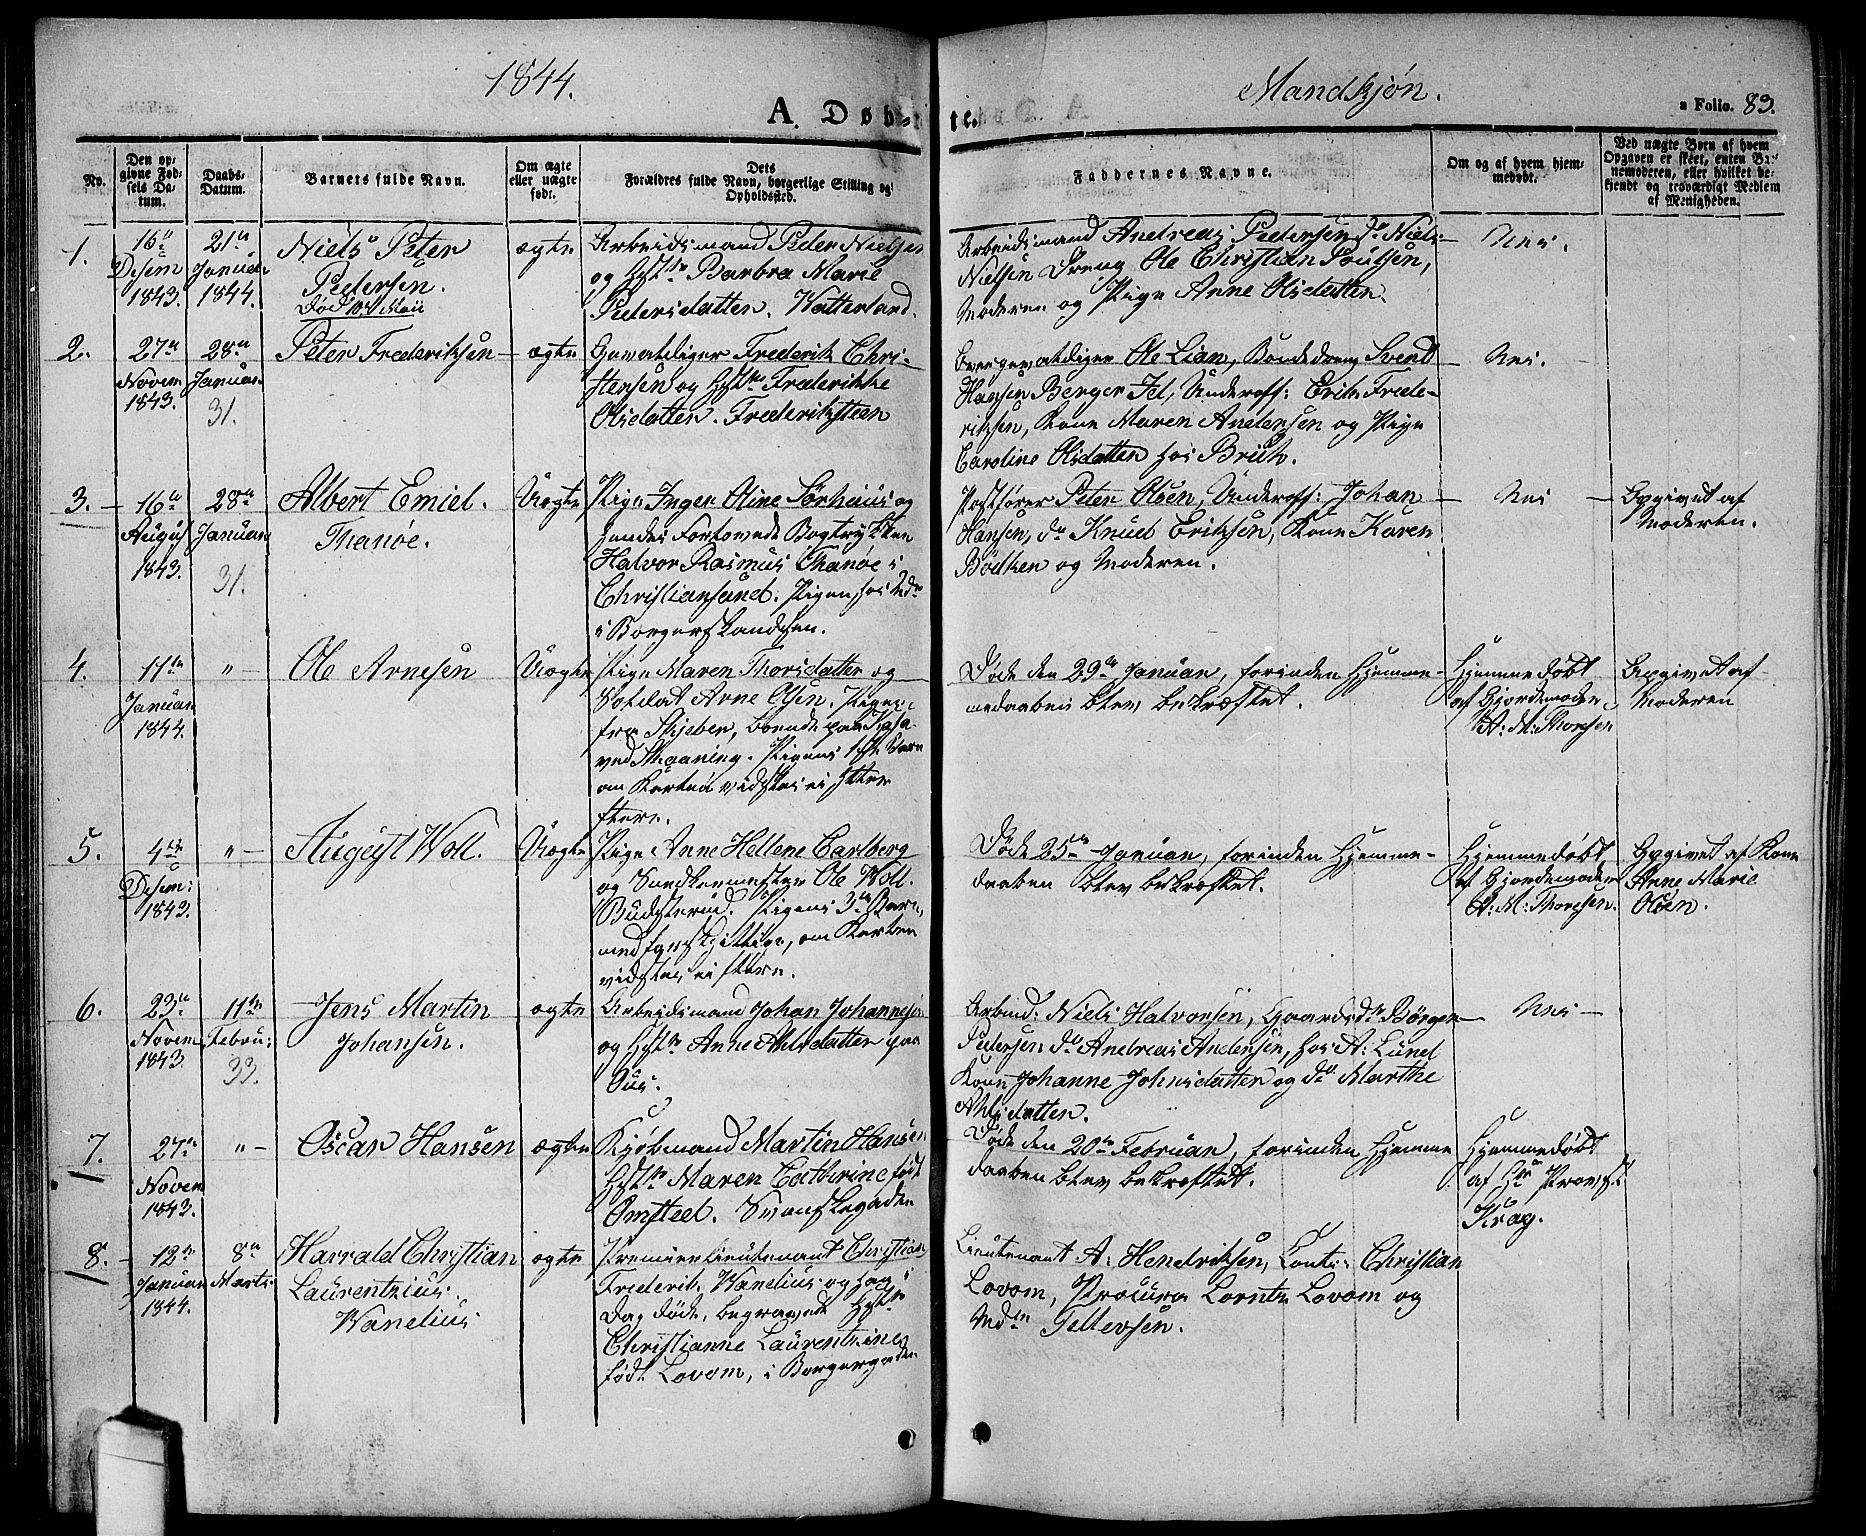 1844.
Mandkjøn.
A. Døbte.
a Folio. 83.
No.
Den opgivne Fødsels Datum.
Daabs-Datum.
Barnets fulde Navn.
Om ægte eller uægte født.
Dets Forældres fulde Navn, borgerlige Stilling og Opholdssted.
Faddernes Navne.
Om og af hvem hjemmedøbt.
Ved uægte Børn af hvem Opgaven er skeet, enten Barnemoderen, eller hvilket bekjendt og troværdigt Medlem af Menigheden.
1.
16de
Desem
1843.
21de
Januar
1844.
Niels Peter
Pedersen.
Død 10/4 Maii
ægte
Arbeidsmand Peder Nielsen
og Hust. Barbra Marie
Pedersdatter. Watterland.
Arbeidsmand Andreas Pedersen, do Niels
Nielsen Dreng Ole Christian Poulsen,
Moderen og Pige Anne Olsdatter.
Nei.
2.
27de
Novem
1843.
28de
Januar
31.
Peter Frederiksen
ægte
Gevaldiger Frederik Chri-
stensen og Hust. Frederikke
Olsdatter. Frederiksteen
Overgevaldiger Ole Lian, Bondedreng Svend
Hansen Berger Jel, Underoff: Erik Frede-
riksen, Kone Maren Andersen og Pige
Caroline Olsdatter hos Brich.
Nei.
3.
16de
August
1843.
28de
Januar
31.
Albert Emiel.
Thanøe.
Uægte
Pige Inger Oline Sørhuus og
hendes Forlovede Bogtrykker
Halvor Rasmus Thanøe i
Christiansund. Pigen hos
i Borgerskandsen.
Postfører Peter Olsen, Underoff: Johan
Hansen, do Knud Eriksen, Kone Karen
Bødker og Moderen.
Nei
Opgivet af
Moderen.
4.
11te
Januar
1844.
"
Ole Arnesen
Uægte
Pige Maren Thorsdatter og
Soldat Arne Olsen. Pigen
fra Skjeber, boende paa
ved Skaaning. Pigens 1ste Barn
om Karlens vidstes ei
flere.
Døde den 29de Januar, forinden Hjemme-
medaaben blev bekræftet.
Hjemmedøbt
af Gjordemoder
A: M: Thoresen
Opgivet af
Moderen
5.
4de
Desem:
1843.
"
August Woll.
Uægte
Pige Anne Hellene Carlberg
og Snedkermester Ole Woll.
Pigens 3de Barn,
med, om Karlen
vidstes ei flere.
Døde 25de Januar, forinden Hjemme-
daaben blev bekræftet.
Hjemmedøbt
af Gjordemoder
A: M: Thoresen.
Opgivet af Kone
Anne Marie
Olsen.
6.
23de
Novem
1843.
11te
Febru:
33.
Jens Martin
Johansen.
ægte
Arbeidsmand Johan Johannesen
og Hust. Anne Ahlsdatter paa
Huus.
Arbeid: Niels Halvorsen, Gaards do Børger
Pedersen do Andreas Andersen, hos A: Lund
Kone Johanne Johnsdatter og do Marthe
Ahlsdatter.
Nei
7.
27de
Novem
1843.
"
Oscar Hansen
ægte
Kjøbmand Martin Hansen
Hust. Maren Cathrine født
Omsted. Svenskegaden
Døde den 20de Februar, forinden Hjemme
daaben blev bekræftet.
Hjemmedøbt
af Hr Provst
Krag.
8.
12te
Januar
1844.
8de
Marts
Harrald Christian
Laurentzius.
Wanelius
ægte
Premierlieutenant Christian
Frederik Wanelius og hans i
Dag døde, begravede Hust.
Christianne Laurentzine
født Lovom, i Borgergaden
Lieutenant A: Hendriksen, Conts: Christian
Lovom, Procura Lorntz Lovom og
Mdm Tellevsen.